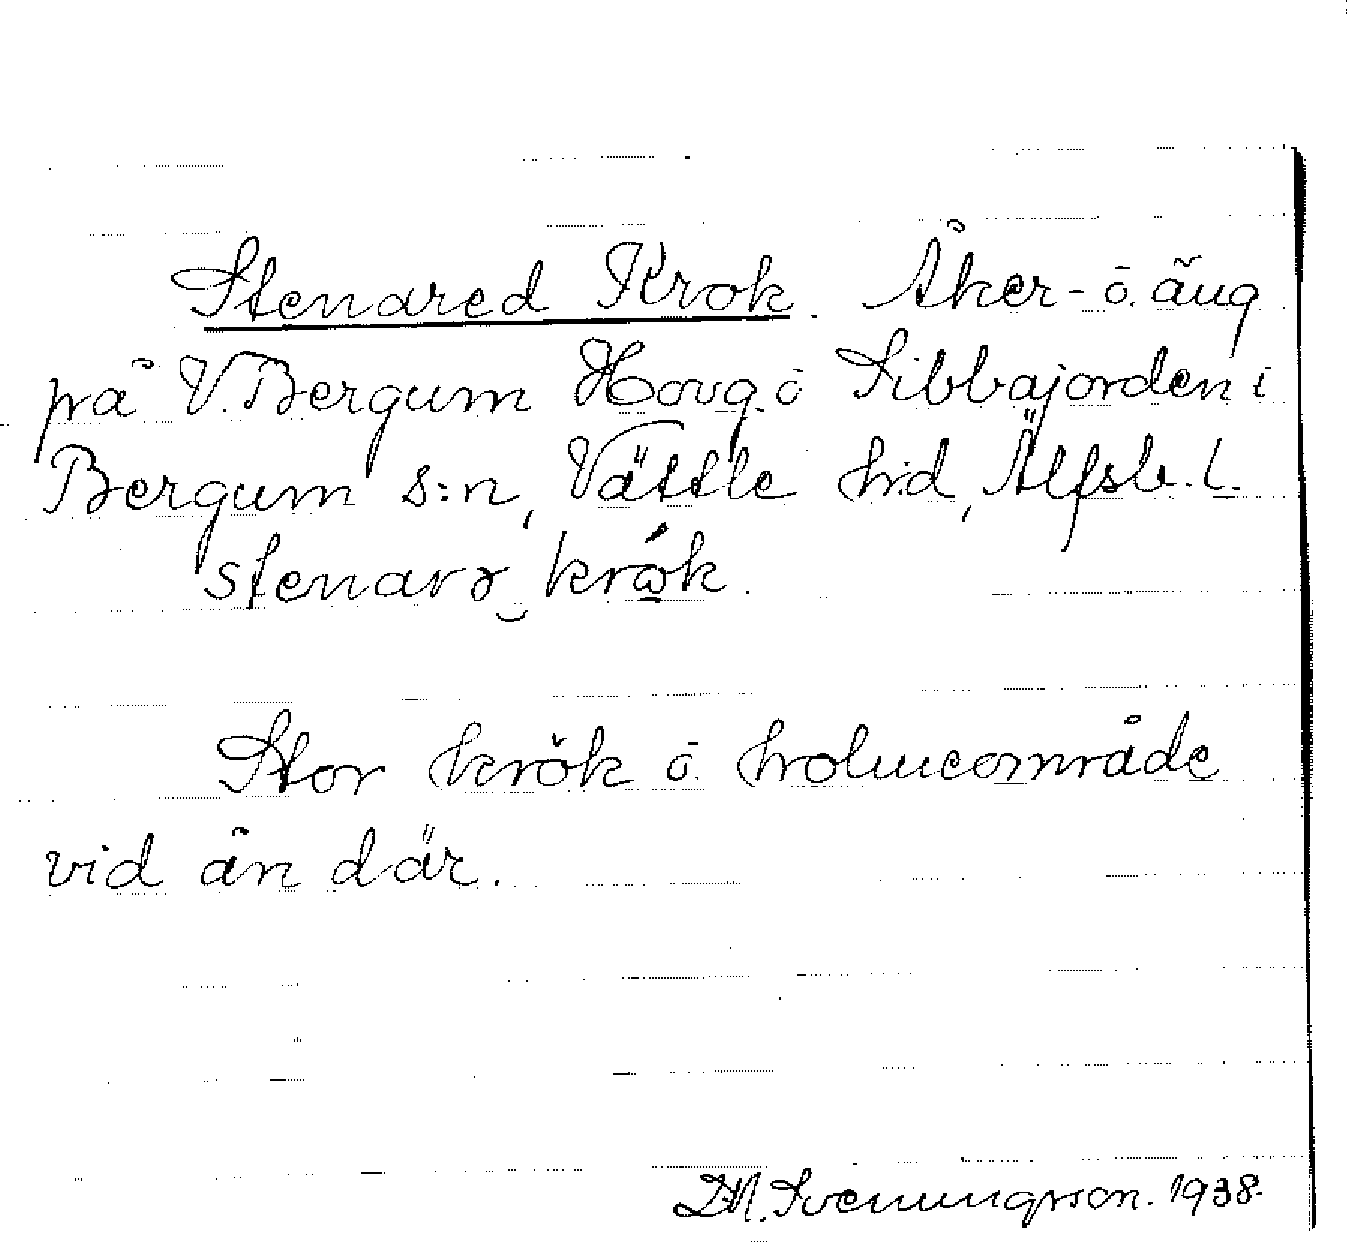 Stenared Krok. Åker- o. äng
på V. Bergum Hovg. o Sibbajorden i
Bergum s:n, Vättle hd, Älfsb. L.
stenarɘ‿krǻ̱k.
Stor krŏk o. holmeområde
vid ån där.
D.N. Svenungsson. 1938.